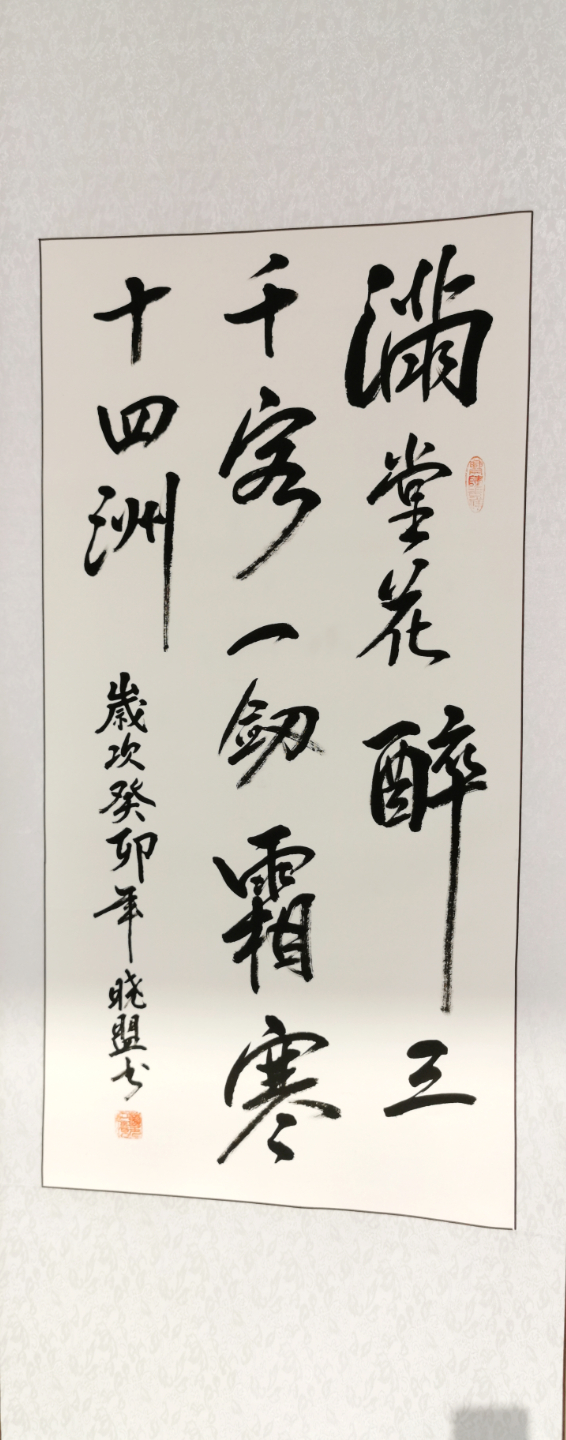 滿堂花醉三
千客一劔霜寒
十四洲
歲次癸卯年晓盟书